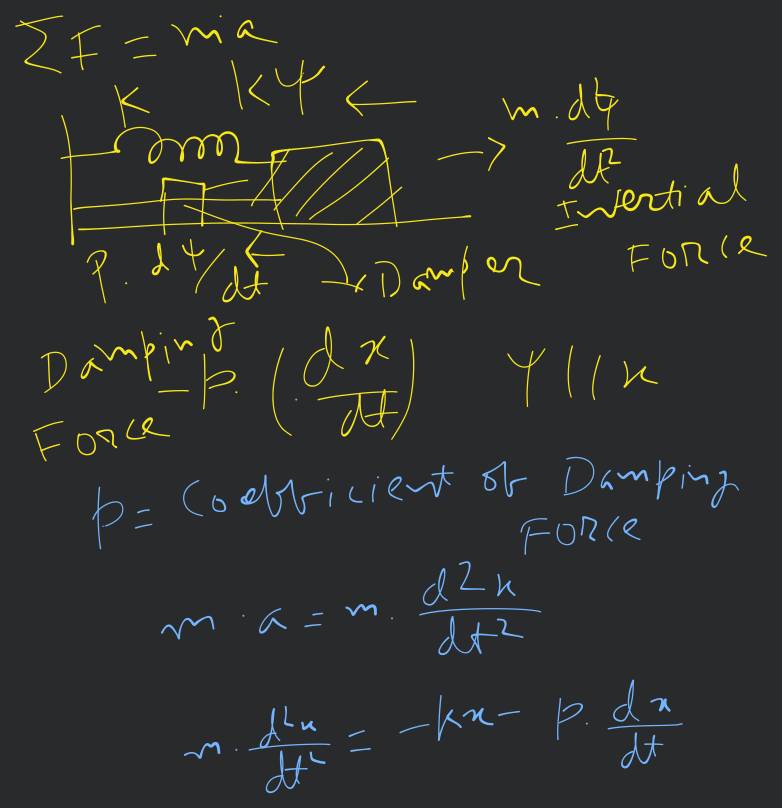 ΣF = ma
K KΨ ←
→ m. dψ/dt²
Inertial
FORCE
P. dΨ/dt ←
Damper
Damping
FORCE
- p. (dx/dt) Ψ || x
p = Coefficient of Damping
FORCE
m . a = m. d²x/dt²
m. d²x/dt² = -kx - p. dx/dt